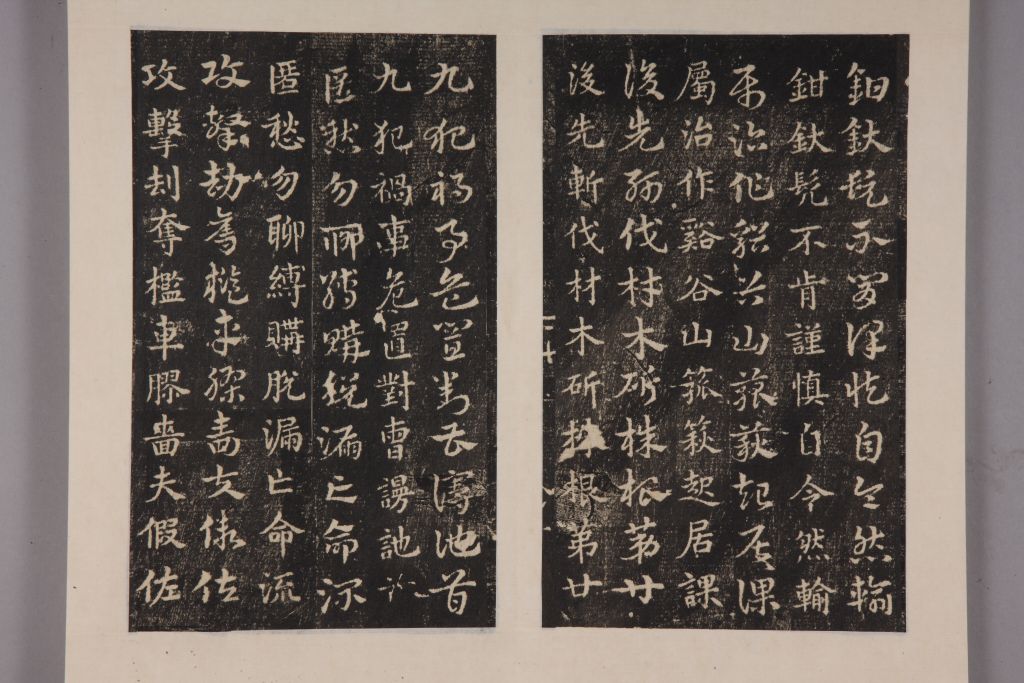 鉗釱髡不肯謹慎自令然輸
鉗釱髡不肯謹慎自令然輸
屬治作谿谷山箛起居課
屬治作谿谷山箛起居課
後先斬伐材木斫株根第廿
後先斬伐材木斫株根第廿
九犯禍事危置對曹謾訑首
九犯禍事危置對曹謾訑
匿愁勿聊縛購脫漏亡命流
匿愁勿聊縛購脫漏亡命流
攻擊劫奪檻車膠嗇夫假佐
攻擊刦奪檻車膠嗇夫假佐